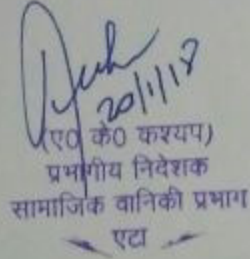 20/1/18
(ए0 के0 कश्यप)
प्रभागीय निदेशक
सामाजिक वानिकी प्रभाग
एटा